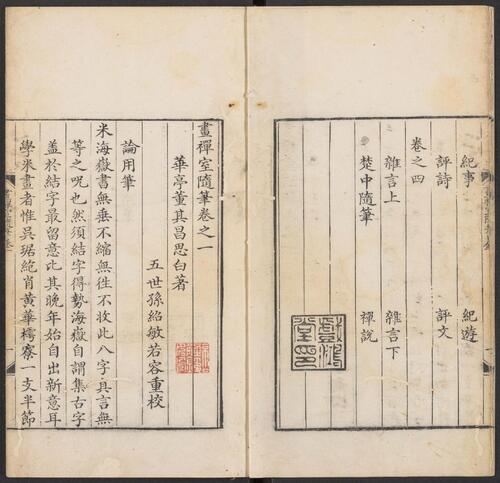 紀事 紀遊
評詩 評文
卷之四
雜言上 雜言下
楚中隨筆 禪說
畫禪室隨筆卷之一
華亭董其昌思白著
五世孫紹敏若容重校
論用筆
米海嶽書無垂不縮無往不收此八字真言無
等之呪也然須結字得勢海嶽自謂集古字
蓋於結字最留意比其晚年始自出新意耳
學米書者惟吳琚絕肖黃華樗寮一支半節